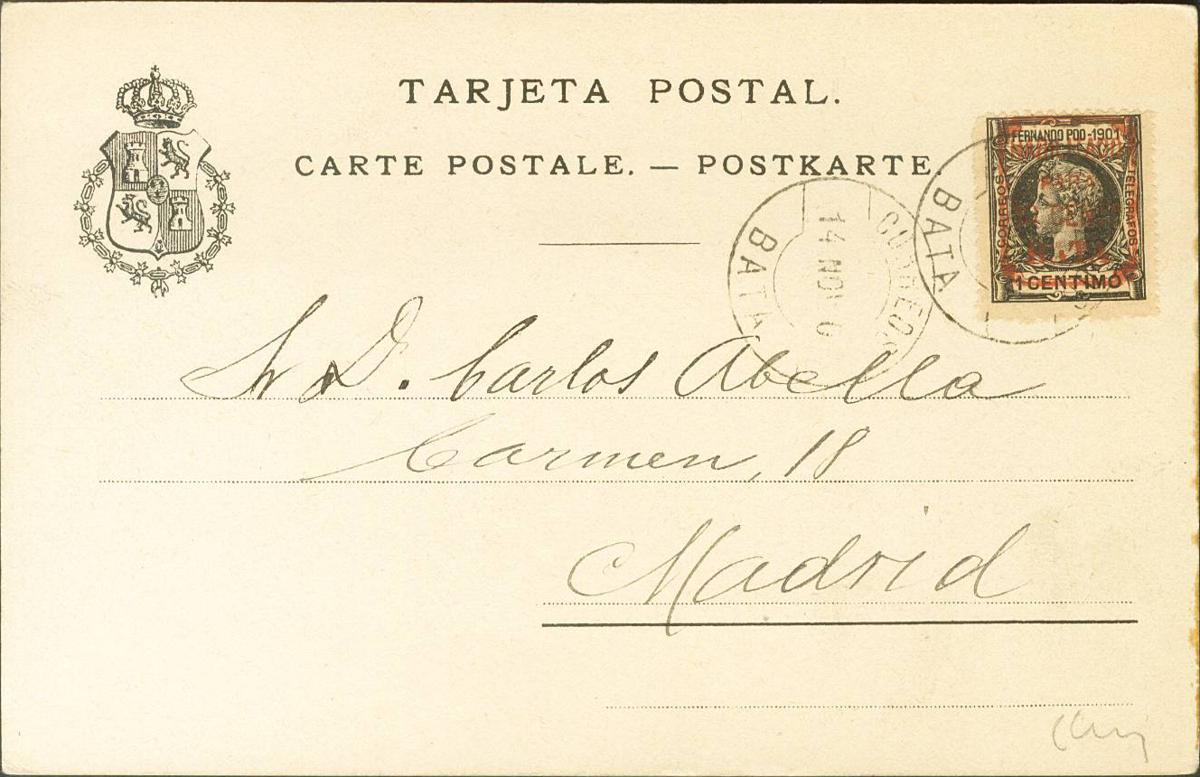 TARJETA POSTAL.
CARTE POSTALE. — POSTKARTE.
FERNANDO POO-1901
CORREOS
TELEGRAFOS
1 CENTIMO
BATA
CORREOS
14 NOV 0
BATA
Sr D. Carlos Abella
Carmen, 18
Madrid